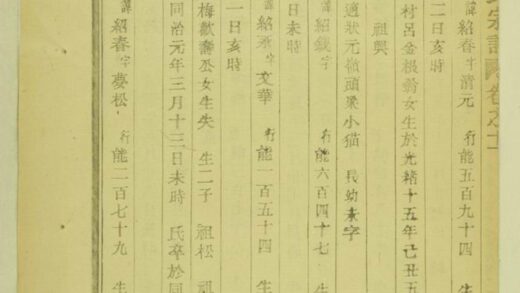 宗譜 卷之十一
諱紹春字清元 行能五百九十四 生
二日亥時
村呂金根翁女生於光緒十五年己丑五
祖興
適狀元 頭眾小猫 氏幼未字
諱紹 字 行能六百四十七 生
日未時
諱紹 字文華 行能一百五十四 生
一日亥時
梅歡壽公女生失 生二子 祖松 祖
同治元年三月十三日未時 氏卒於同
諱紹春字夢松 行能二百七十九 生